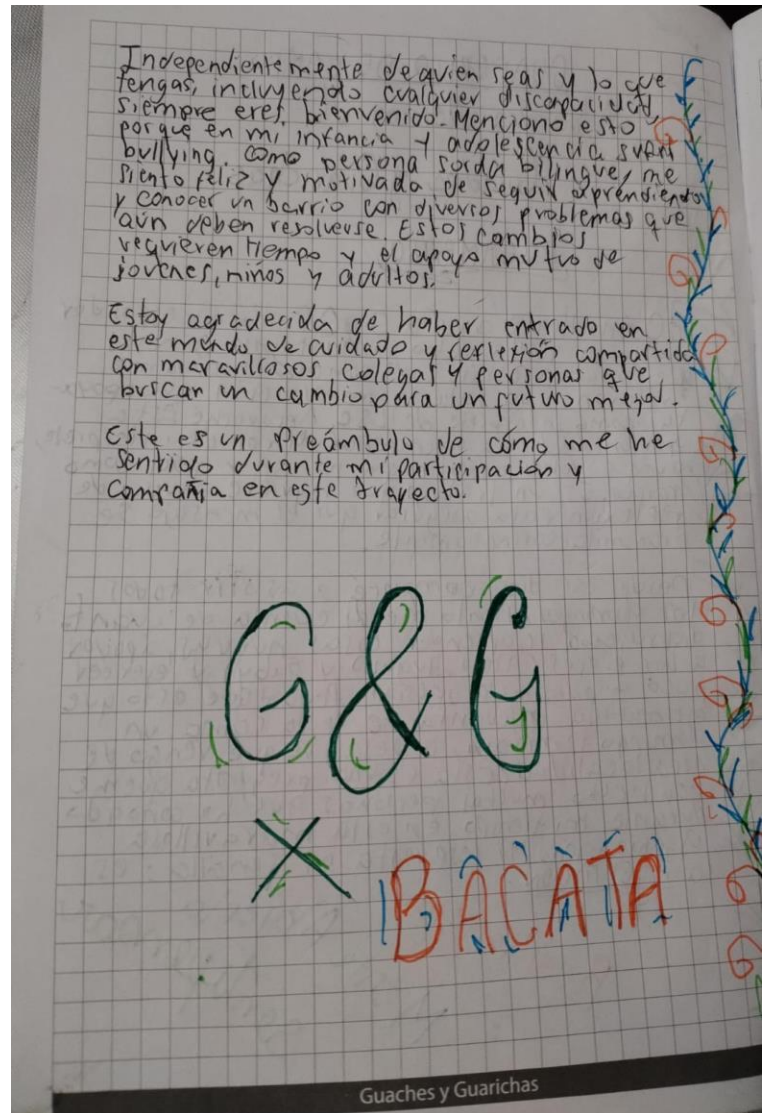 Independientemente de quien seas y lo que
tengas, incluyendo cualquier discapacidad,
siempre eres bienvenido. Menciono esto
porque en mi infancia y adolescencia sufrí
bullying. Como persona sorda bilingue, me
siento feliz y motivada de seguir aprendiendo
y conocer un barrio con diversos problemas que
aún deben resolverse. Estos cambios
requieren tiempo y el apoyo mutuo de
jovenes, niños y adultos.
Estoy agradecida de haber entrado en
este mundo de cuidado y reflexión compartida
con maravillosos colegas y personas que
buscan un cambio para un futuro mejor.
Este es un preámbulo de cómo me he
sentido durante mi participación y
compañia en este trayecto.
G & G
X BACATA
Guaches y Guarichas